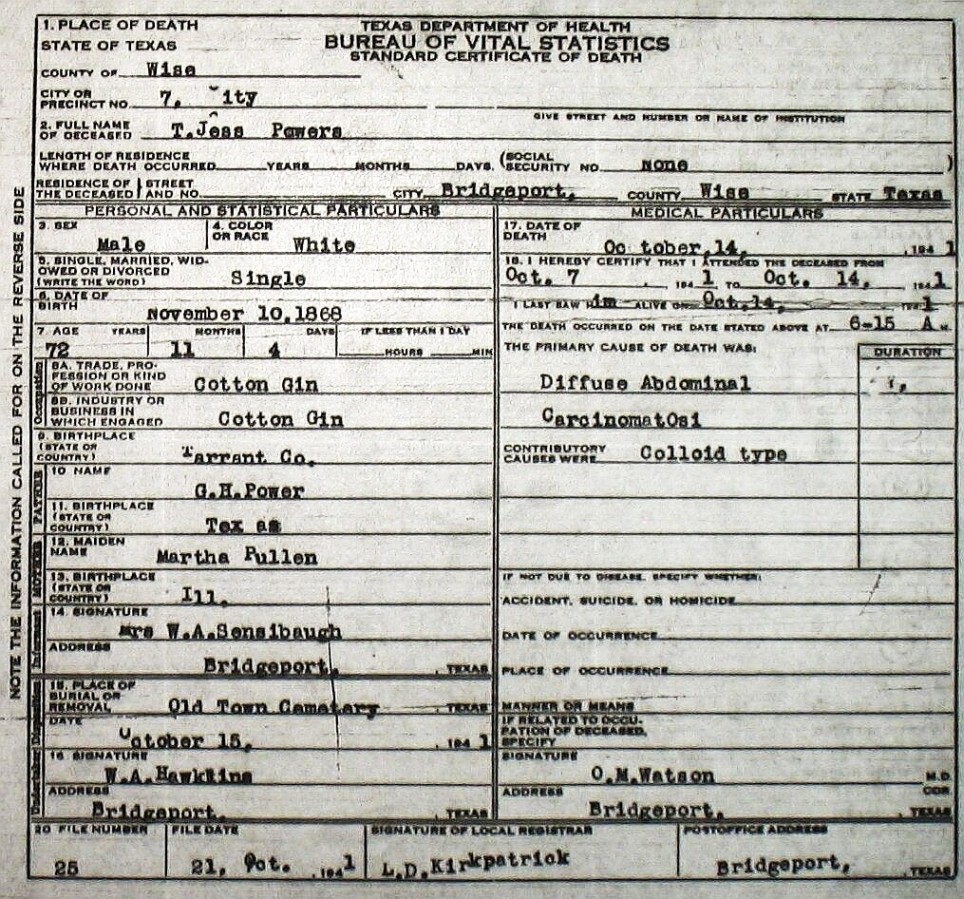 NOTE THE INFORMATION CALLED FOR ON THE REVERSE SIDE
TEXAS DEPARTMENT OF HEALTH
BUREAU OF VITAL STATISTICS
STANDARD CERTIFICATE OF DEATH
1. PLACE OF DEATH
STATE OF TEXAS
COUNTY OF Wise
CITY OR PRECINCT NO. 7. City
GIVE STREET AND NUMBER OR NAME OF INSTITUTION
2. FULL NAME OF DECEASED T.Jess Powers
LENGTH OF RESIDENCE WHERE DEATH OCCURRED YEARS MONTHS DAYS. (SOCIAL SECURITY NO. none )
RESIDENCE OF THE DECEASED STREET AND NO. CITY Bridgeport, COUNTY Wise STATE Texas
PERSONAL AND STATISTICAL PARTICULARS
3. SEX Male
4. COLOR OR RACE White
5. SINGLE, MARRIED, WIDOWED OR DIVORCED (WRITE THE WORD) Single
6. DATE OF BIRTH November 10,1868
7. AGE YEARS MONTHS DAYS IF LESS THAN 1 DAY
72 11 4 HOURS MIN
Occupation
8A. TRADE, PROFESSION OR KIND OF WORK DONE Cotton Gin
8B. INDUSTRY OR BUSINESS IN WHICH ENGAGED Cotton Gin
9. BIRTHPLACE (STATE OR COUNTRY) Tarrant Co.
FATHER
10 NAME G.H.Power
11. BIRTHPLACE (STATE OR COUNTRY) Tex as
MOTHER
12. MAIDEN NAME Martha Pullen
13. BIRTHPLACE (STATE OR COUNTRY) Ill.
Informant
14. SIGNATURE Mrs W.A.Sensibaugh
ADDRESS Bridgeport, , TEXAS
Undertaker Disposition
15. PLACE OF BURIAL OR REMOVAL Old Town Cematary , TEXAS
DATE October 15, , 194 1
16 SIGNATURE W.A.Hawkkins
ADDRESS Bridgeport, , TEXAS
MEDICAL PARTICULARS
17. DATE OF DEATH Oc tober,14, , 194 1
18. I HEREBY CERTIFY THAT I ATTENDED THE DECEASED FROM
Oct. 7 , 194 1 TO Oct. 14, , 194 1
I LAST SAW him ALIVE ON Oct.14, 194 1
THE DEATH OCCURRED ON THE DATE STATED ABOVE AT 6-15 A M.
THE PRIMARY CAUSE OF DEATH WAS: DURATION
Diffuse Abdominal
CarcinomatOsi
CONTRIBUTORY CAUSES WERE Colloid type
IF NOT DUE TO DISEASE, SPECIFY WHETHER:
ACCIDENT, SUICIDE, OR HOMICIDE
DATE OF OCCURRENCE
PLACE OF OCCURRENCE
MANNER OR MEANS
IF RELATED TO OCCUPATION OF DECEASED, SPECIFY
SIGNATURE O.M.Watson M.D. COR.
ADDRESS Bridgeport, , TEXAS
20 FILE NUMBER 25
FILE DATE 21, Oct. , 194 1
SIGNATURE OF LOCAL REGISTRAR L.D.Kirkpatrick
POSTOFFICE ADDRESS Bridgeport, , TEXAS